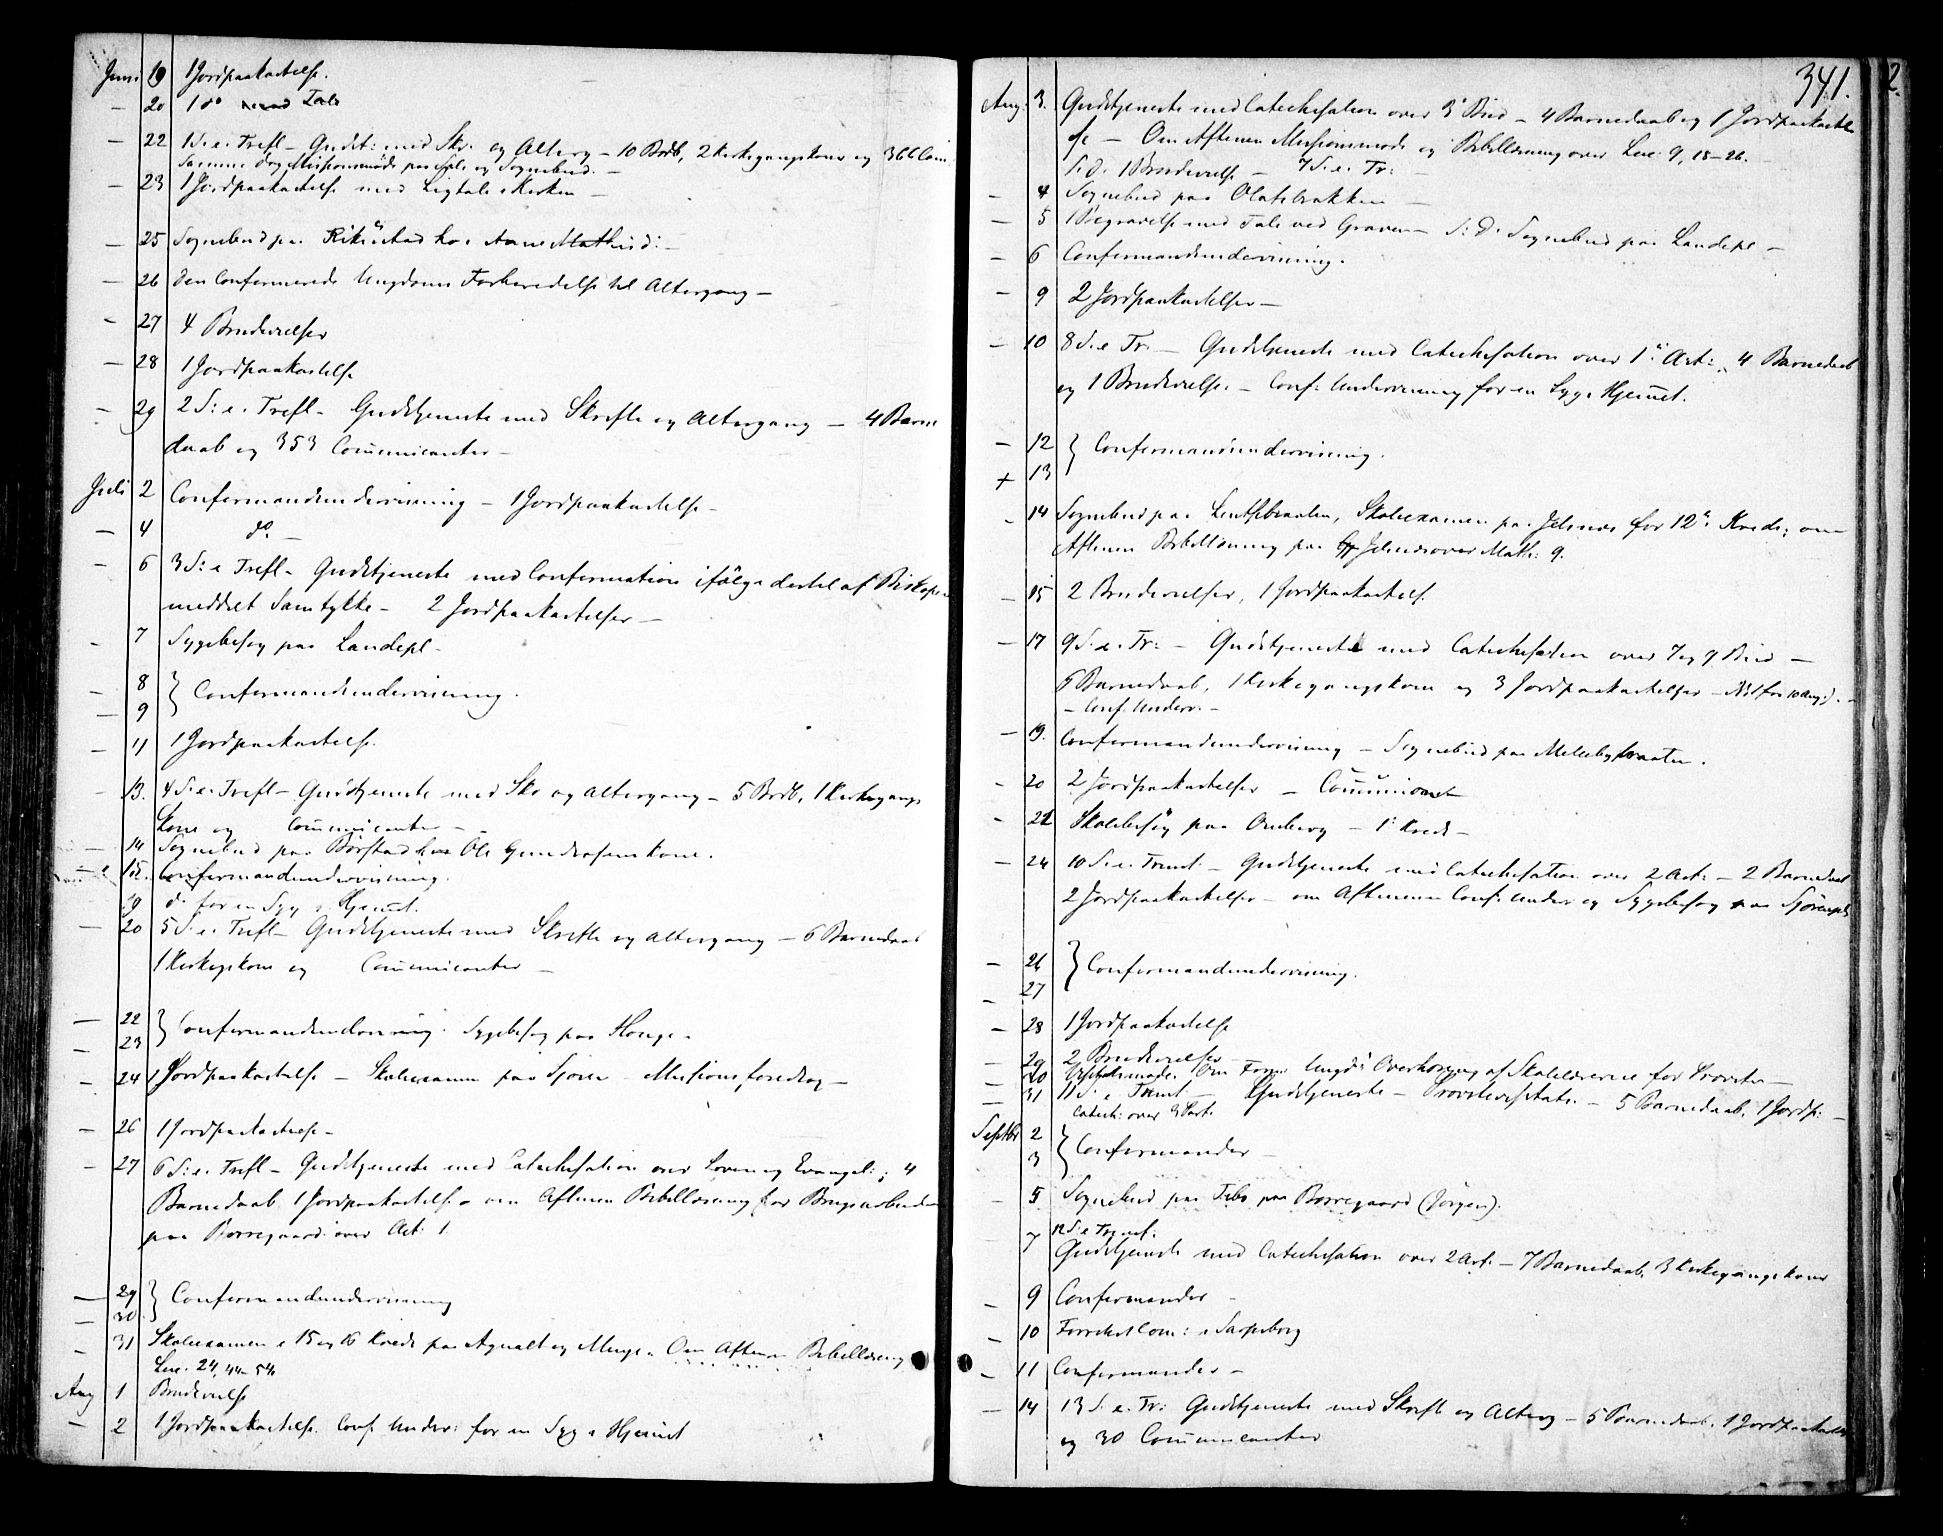 Juni 19 1 Jordpaakastelse.
— 20 1 do Tale
— 22 1 S. e. Trefl – Gudst: med Skr. og Alterg – 10 Brdb, 2 kirkegangskoner og 366 Com.
Samme dag Missionsmöde paa og Sognebud. —
— 23 1 Jordpaakastelse med Ligtale i Kirken —
— 25 Sognebud paa hos Anne Mathisd: —
— 26 Den Confirmerede Ungdoms Forberedelse til Altergang —
— 27 4 Brudevielser
— 28 1 Jordpaakastelse
— 29 2 S: e. Trefl – Gudstjeneste med Skrifte og Altergang — 4 Barne
daab og 353 Communicanter –
Juli 2 Confirmandundervisning – 1 Jordpaakastelse –
— 4 do. —
— 6 3 S: e Trefl – Gudstjeneste med Confirmation ifölge dertil af Biskopen
meddelt Samtykke – 2 Jordpaakastelser —
— 7 Sygebesög paa Landepl –
— 8 } Confirmandundervisning.
— 9
— 11 1 Jordpaakastelse.
— 13. 4 S. e. Trefl – Gudstjeneste med Skr og Altergang – 5 Brdb, 1 Kirkegangs
Kone og Communicanter –
— 14 Sognebud paa Börstad hos Ole Gundersens kone.
— 15. Confirmandundervisning.
19 do for en Syg i Hjemmet.
— 20 5 S. e. Trefl – Gudstjeneste med Skrifte og Altergang – 6 Barnedaab
1 Kirkegskone og Communicanter —
— 22 } Confirmandundervisning. Sygebesög paa Hauge.
— 23
— 24 1 Jordpaakastelse – Skoleexamen paa – Missionsforedrag –
— 26 1 Jordpaakastelse –
— 27 6 S: e. Trefl – Gudstjeneste med Catechisation over Loven og Evangel:; 4
Barnedaab 1 Jordpaakastelse – om Aftenen Bibellæsning for
paa Borregaard over Act. 1.
— 29 } Confirmandundervisning
— 30
— 31 Skoleexamen i 15 og 16 Kreds paa Agnalt og – Om Aftenen Bibellæsning
Luc. 24, 44–54
Aug 1 Brudevielse
— 2 1 Jordpaakastelse. Conf. Underv: for en Syg i Hjemmet
341.
2.
Aug: 3. Gudstjeneste med Catechisation over 3 Bud – 4 Barnedaab og 1 Jordpaakastel
se – Om Aftenen Missionsmöde og Bibellæsning over Luc: 9, 18–26.
S. D. 1 Brudevielse — 7 S. e. Tr: —
— 4 Sognebud paa Olatsbakken —
— 5 1 Begravelse med Tale ved Graven – S: D. Sognebud paa Landepl –
— 6 Confirmandundervisning.
— 9 2 Jordpaakastelser —
— 10 8 S. e Tr. — Gudstjeneste med Catechisation over 1e Art:, 4 Barnedaab
og 1 Brudevielse. – Conf: Undervisning for en Syg i Hjemmet.
— 12 } Confirmandundervisning.
+ 13
— 14 Sognebud paa , Skoleexamen paa Jelsnes for 12e Kreds; om
Aftenen Bibellæsning paa Jelsnes over Math: 9.
— 15 2 Brudevielser, 1 Jordpaakastelse.
— 17 9 S. e. Tr: – Gudstjeneste med Catechisation over 7 og 9 Bud —
6 Barnedaab, 1 Kirkegangskone og 3 Jordpaakastelser – (1 for 10 Aug:). –
– Conf. Underv: –
— 19. Confirmandundervisning – Sognebud paa .
— 20 2 Jordpaakastelser —
— 22 Skolebesög paa Omberg – 1e Kreds –
— 24 10 S. e. Trinit. – Gudstjeneste med Catechisation over 2 Art: – 2 Barnedaab
2 Jordpaakastelser – om Aftenen Conf. Under og Sygebesög paa
— 26 } Confirmandundervisning.
— 27
— 28 1 Jordpaakastelse
— 29 2 Brudevielser –
— 30 Ungd: Overhöring af Skolelærerne for Provsten —
— 31 11 S. e Trinit — Gudstjeneste – Provstevisitats. – 5 Barnedaab, 1 Jordp. –
Catech: over 3 Art.
Septbr 2 } Confirmander —
3
— 5 Sognebud paa paa Borregaard (Jörgen).
— 7 12 S: e Trinit:
Gudstjeneste med Catechisation over 2 Art. – 7 Barnedaab, 3 Kirkegangskoner
— 9 Confirmander –
— 10 Com: i Sarpsborg
— 11 Confirmander –
— 14 13 S. e. Tr: Gudstjeneste med Skrifte og Alterg – 5 Barnedaab. 1 Jordpaakastelse
og 30 Communicanter